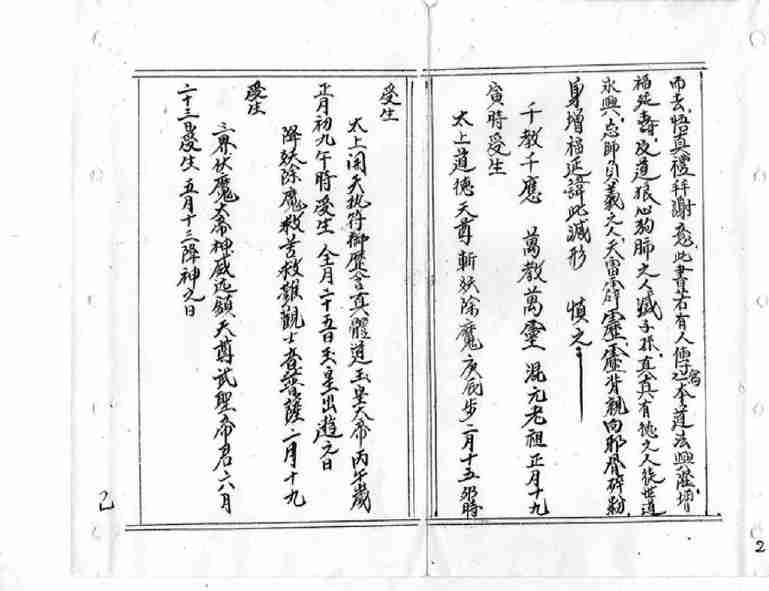 而去、悟真禮拜謝、此書若有人傳寫之本道法興隆增
福延壽、改道狼心狗肺之人滅子孫、直真有德之人徒世道
永興、忘師負義之人、天雷霹靂背親向邪骨碎粉
身增福延諱此滅形 慎之
千教千應 萬教萬靈 混元老祖正月十九
寅時受生
太上道德天尊斬妖除魔庚辰步二月十五卯時
受生
太上開天執符御歷含真體道玉皇大帝丙午歲
正月初九午時受生 仝月二十五日玉皇出遊之日
降妖除魔救苦救難觀士音菩薩二月十九
受生
三界伏魔大帝神威远鎮天尊武聖帝君六月
二十三日受生 五月十三降神之日
2